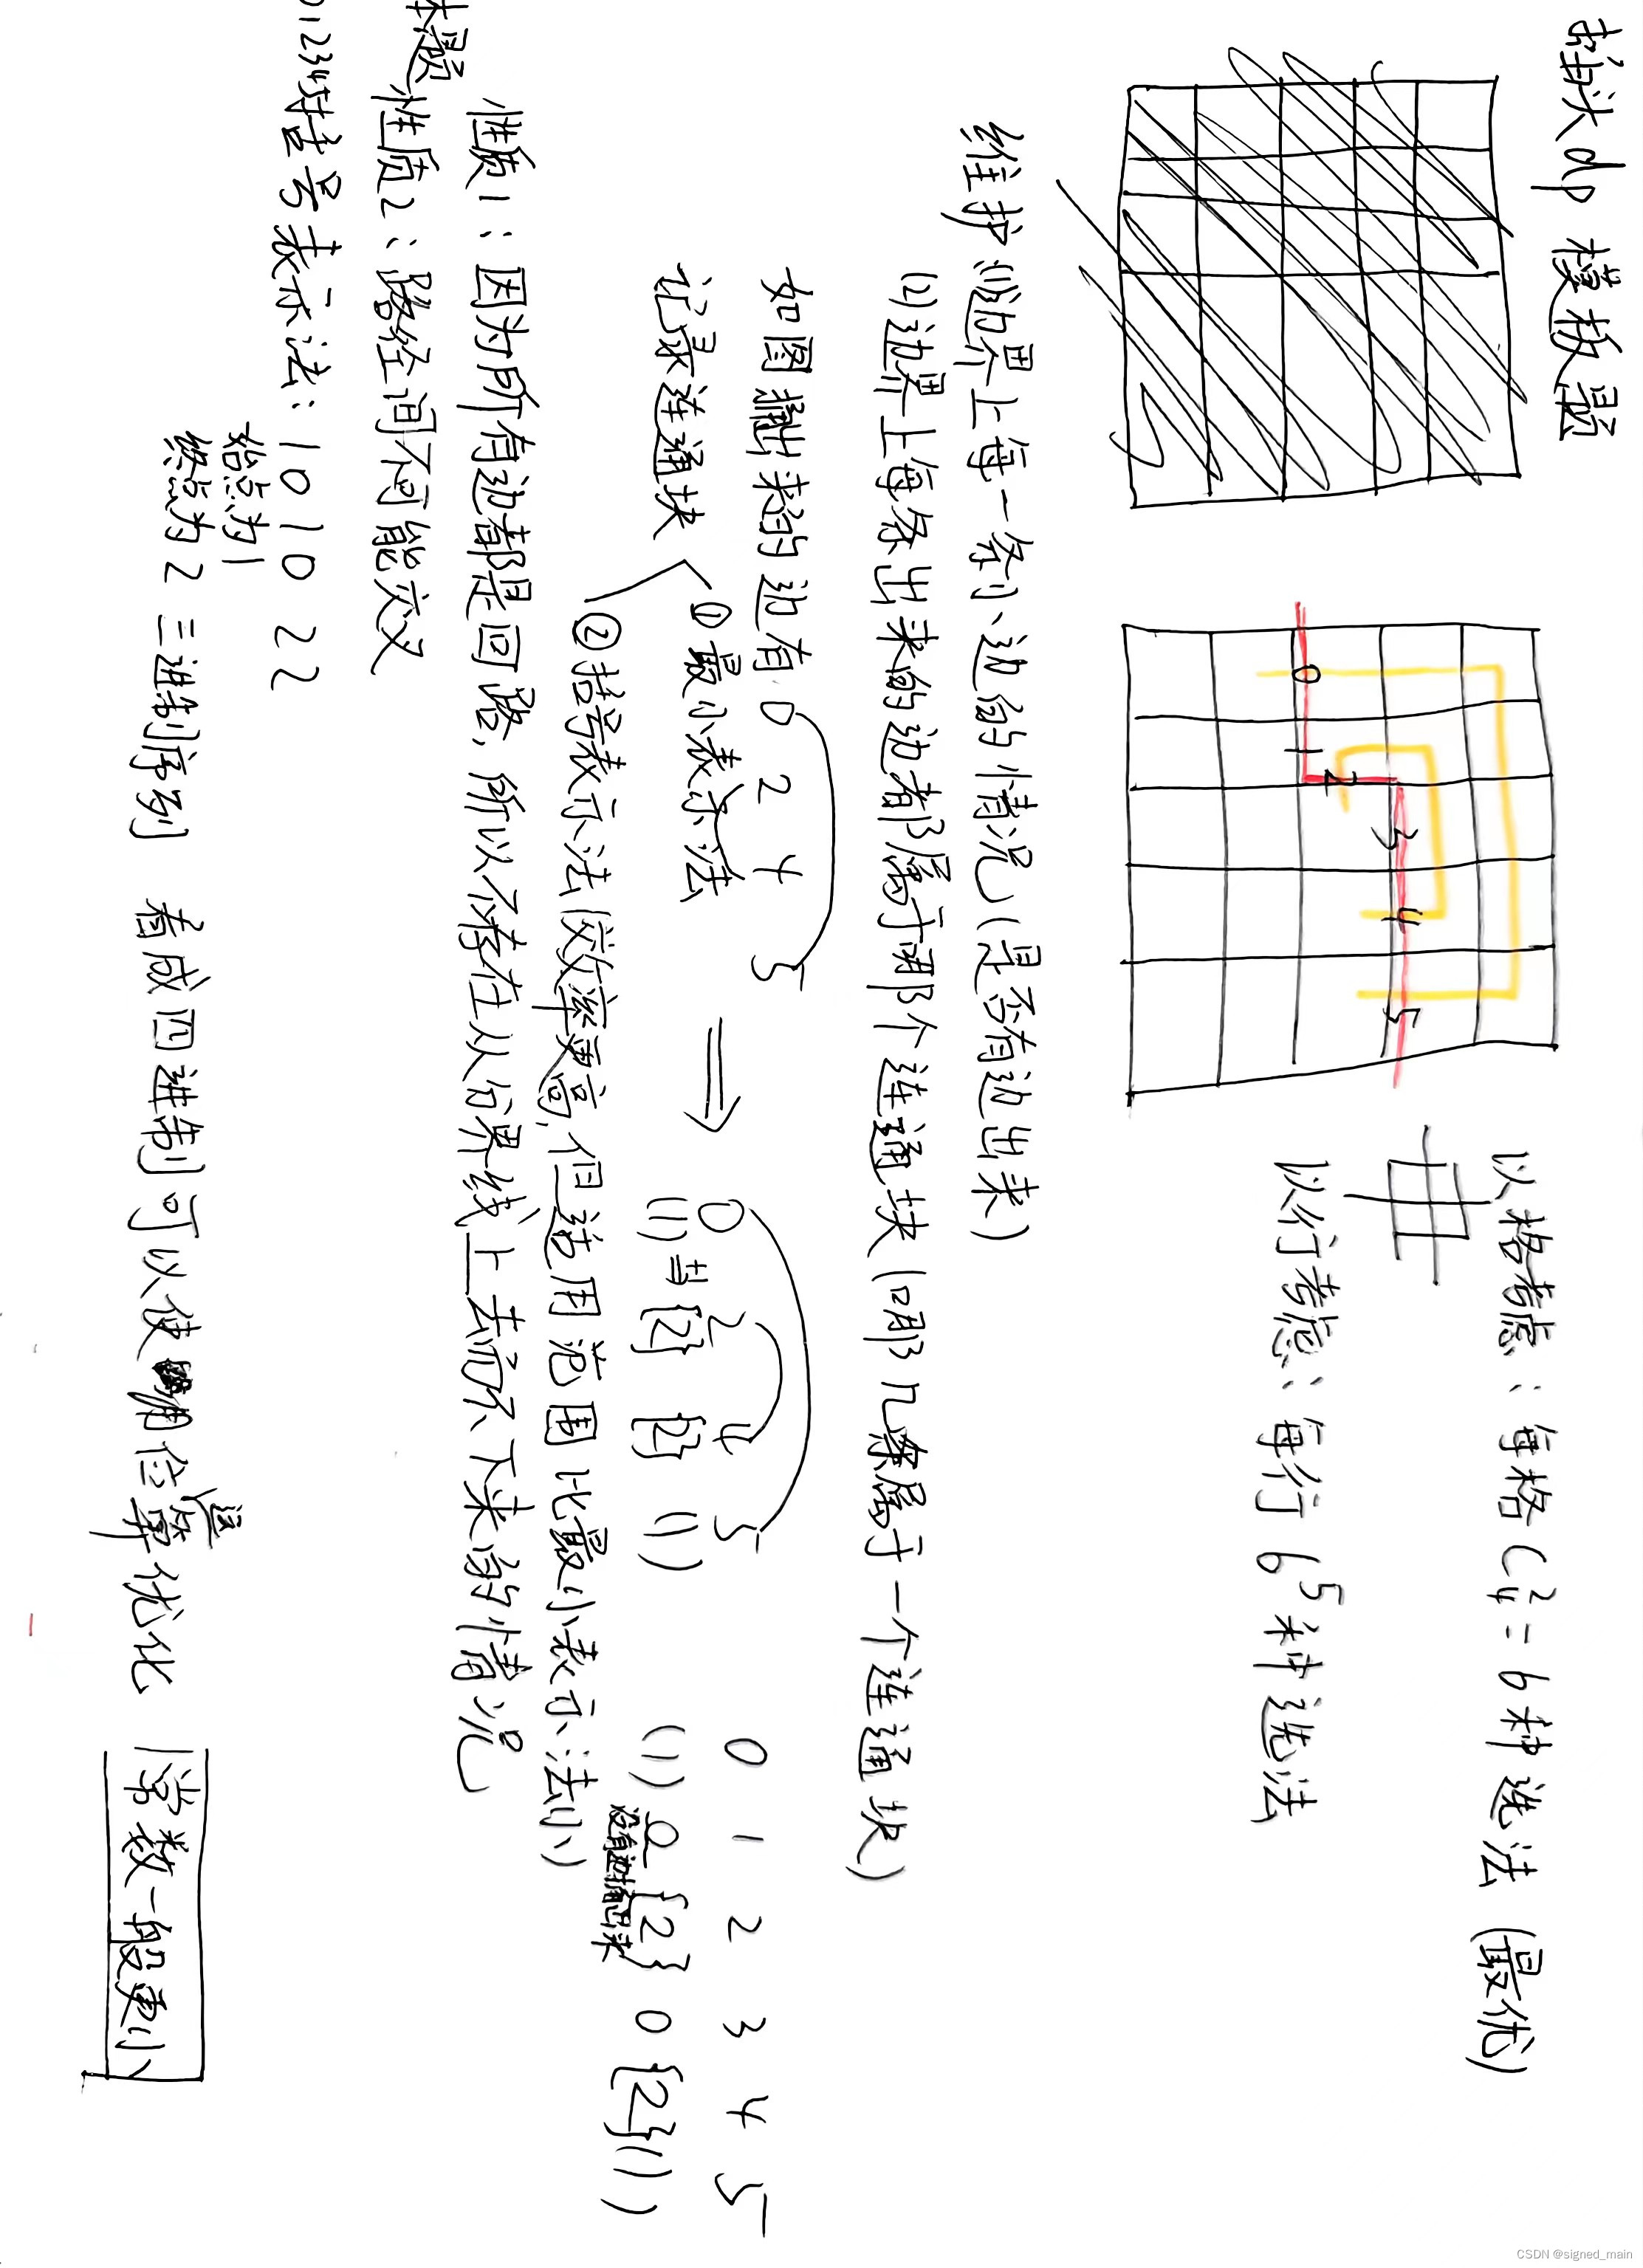 插头dp 模板题
以格考虑：每格C₄²=6种选法（最优）
以行考虑：每行 6⁵种选法
0 1 2 3 4 5
维护 (1)边界上每一条小边的情况（是否有边出来）
(2)边界上每条出来的边都属于哪个连通块（哪几条属于一个连通块）
如图捅出来的边有 0 2 4 5
记录连通块
①最小表示法
②括号表示法（效率更高，但适用范围比最小表示法小）
⇒
0 2 4 5
(1) 与 {2} {2} (1)
0 1 2 3 4 5
(1) 0 {2} 0 {2} (1)
没有边捅出来
性质1：因为所有边都是回路，所以不存在从分界线上去而不下来的情况
本题
性质2：路径间不可能交叉
01234括号表示法：1 0 1 0 2 2
始点为1
终点为2 三进制序列 看成四进制可以使用位运算优化 常数一般更小
CSDN @signed_main